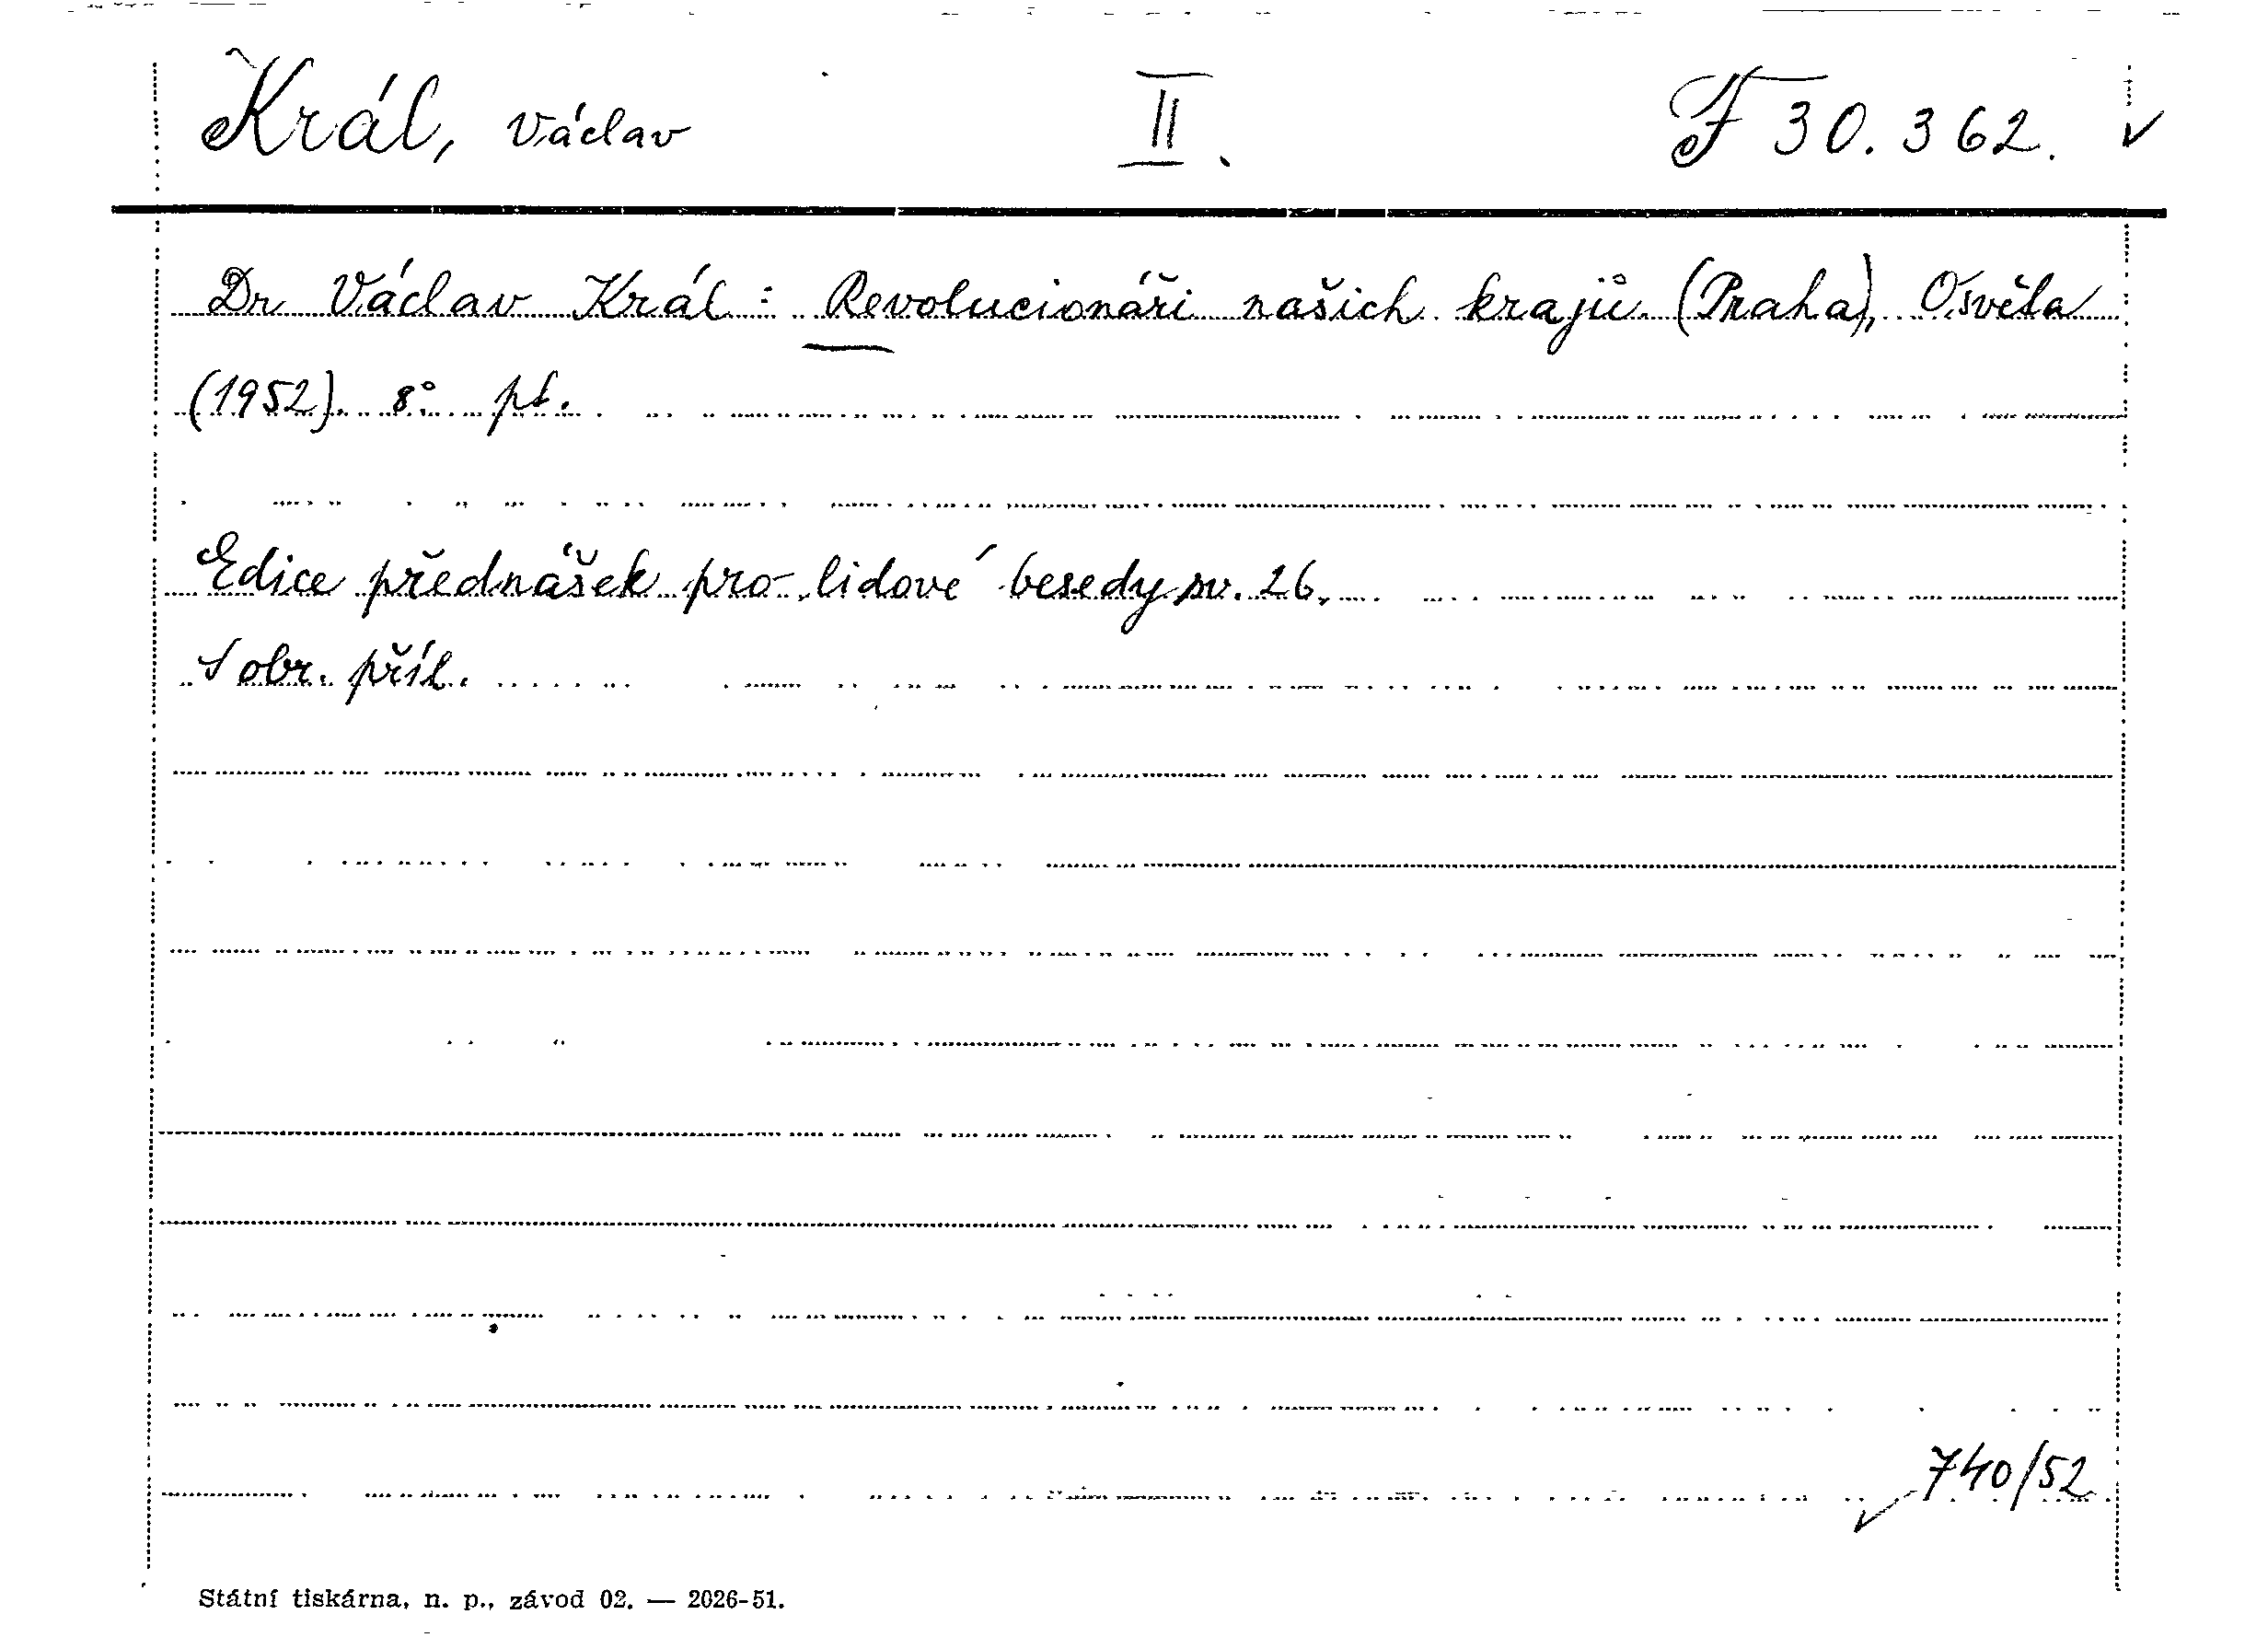 Král, Václav II. F 30.362. ✓
Dr Václav Král: Revolucionáři našich krajů. (Praha), Osvěta
(1952). 8° pt.
Edice přednášek pro lidové besedy sv. 26.
S obr. příl.
740/52
Státní tiskárna, n. p., závod 02. — 2026-51.